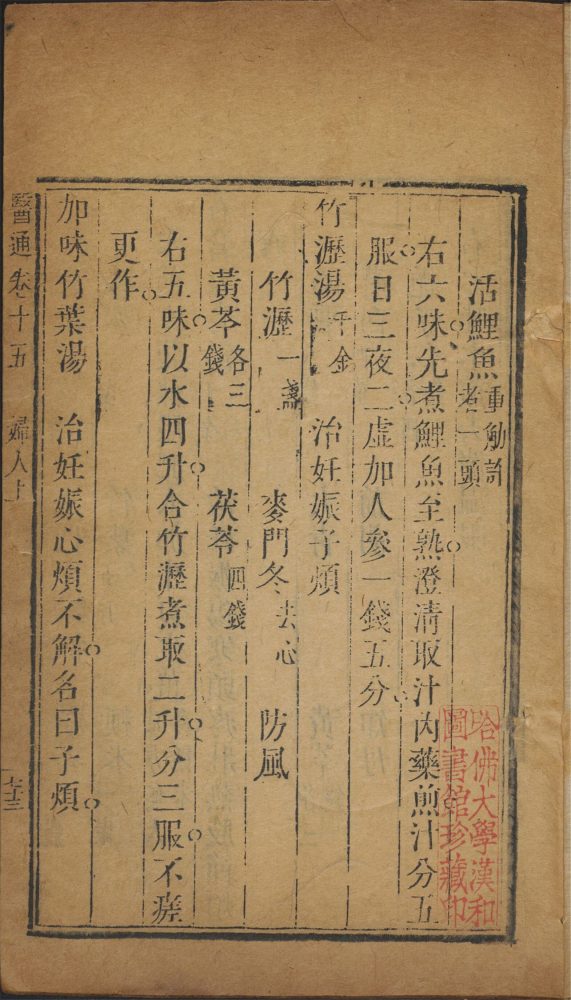 活鯉魚重觔許者一頭
右六味先煮鯉魚至熟澄清取汁內藥煎汁分五
服日三夜二虛加人參一錢五分
竹瀝湯千金　治妊娠子煩
竹瀝一盞　麥門冬去心　防風
黃芩各三錢　茯苓四錢
右五味以水四升合竹瀝煮取二升分三服不瘥
更作
加味竹葉湯　治妊娠心煩不解名曰子煩
醫通卷十五　婦人上　七十三
哈佛大學漢和
圖書館珍藏印